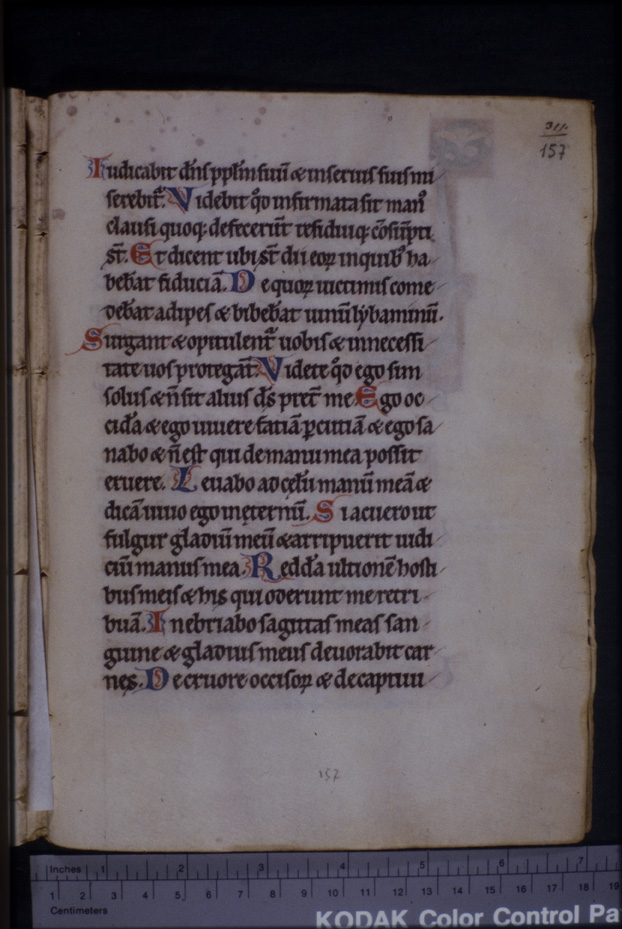 311.
157
Iudicabit dn̄s ppl̄m suū & in seruis suis mi
serebit᷑. Videbit q̊o infirmata sit man᷒
clausi quoq; defecerūt residuiq; cōsūpti
st̄. Et dicent ubi st̄ dii eoꝝ inquib᷒ ha
beb̄at fiduciā. De quoꝝ uictimis come
deb̄at adipes & bibeb̄at uinū lybaminū.
Surgant & opitulent᷑ uobis & innecessi
tate uos protegāt. Videte q̊o ego sim
solus & n̄ sit alius ds̄ pret̄ me. Ego oc
cidā & ego uiuere faciā ꝑcutiā & ego sa
nabo & n̄ est qui de manu mea possit
eruere. Leuabo ad cęlū manū meā &
dicā uiuo ego inęternū. Si acuero ut
fulgur gladiū meū & arripuerit iudi
ciū manus mea. Reddā ultionē hosti
bus meis & his qui oderunt me retri
buā. Inebriabo sagittas meas san
guine & gladius meus deuorabit car
nes. De cruore occisoꝝ & de captiui
157
Inches 1 2 3 4 5 6 7
1 2 3 4 5 6 7 8 9 10 11 12 13 14 15 16 17 18 19
Centimeters
KODAK Color Control Pa